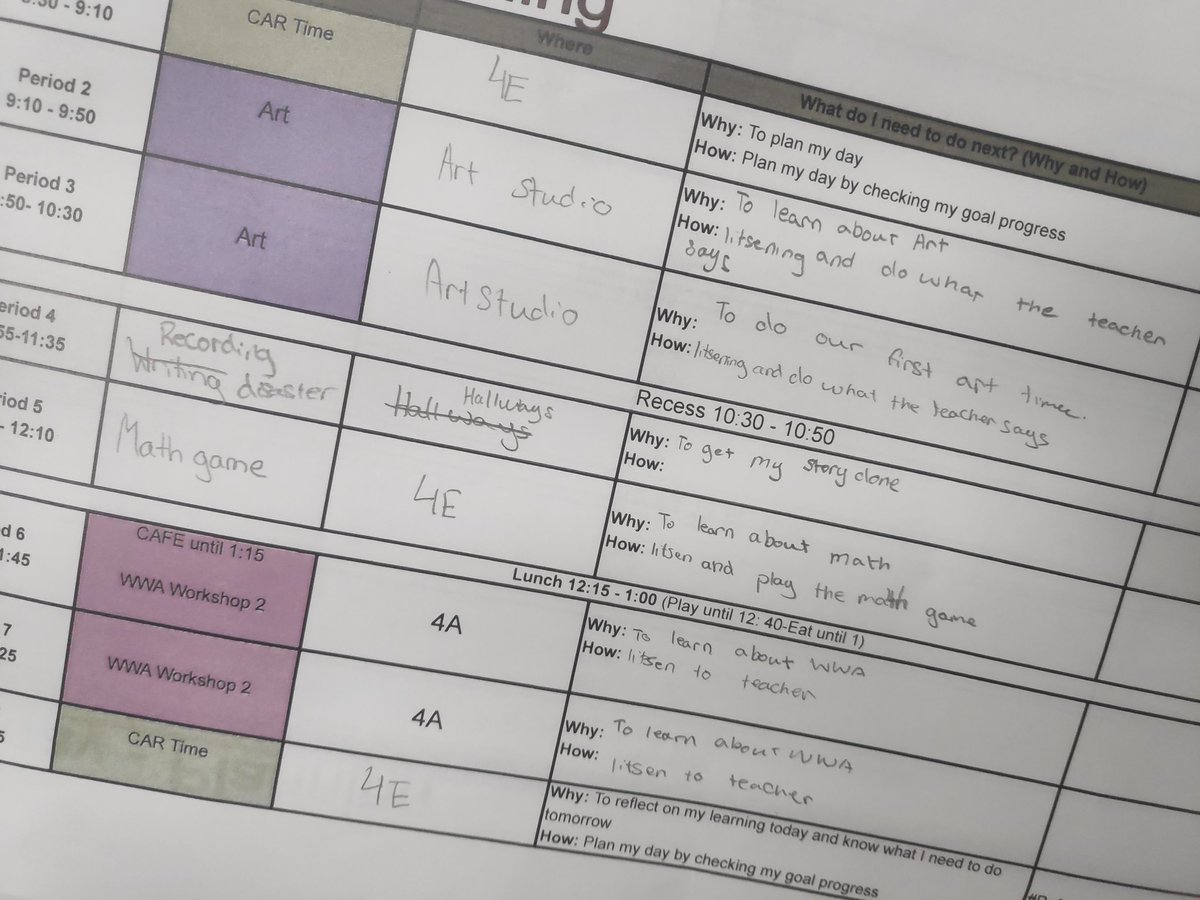 - 9:10
CAR Time
Where
What do I need to do next? (Why and How)
4E
Why: To plan my day
How: Plan my day by checking my goal progress
Period 2
9:10 - 9:50
Art
Art Studio
Why: To learn about Art
How: litsening and do what the teacher
says
Period 3
:50- 10:30
Art
Art Studio
Why: To do our first art time.
How: litsening and do what the teacher says
Recess 10:30 - 10:50
eriod 4
55-11:35
Recording
Writing disaster
Hallways
Hallways
Why: To get my story done
How:
iod 5
- 12:10
Math game
4E
Why: To learn about math
How: litsen and play the math game
Lunch 12:15 - 1:00 (Play until 12: 40-Eat until 1)
d 6
1:45
CAFE until 1:15
WWA Workshop 2
4A
Why: To learn about WWA
How: litsen to teacher
7
25
WWA Workshop 2
4A
Why: To learn about WWA
How: litsen to teacher
5
CAR Time
4E
Why: To reflect on my learning today and know what I need to do
tomorrow
How: Plan my day by checking my goal progress